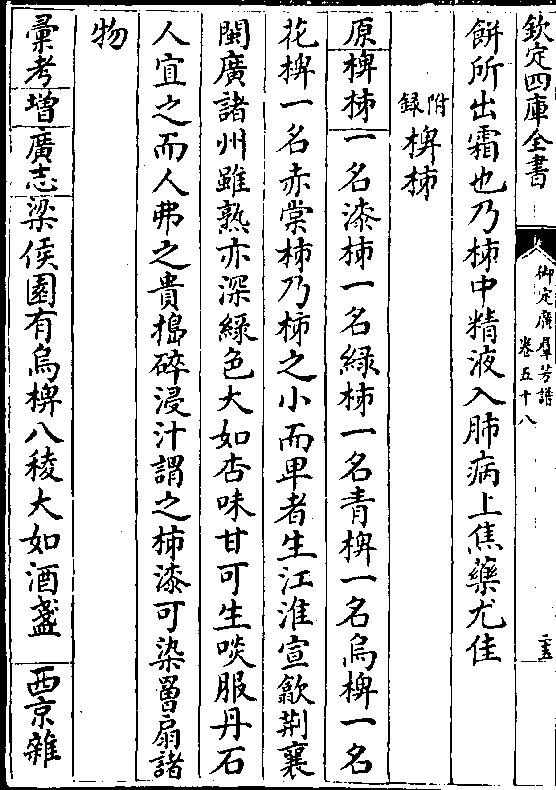 欽定四庫全書
御定廣羣芳譜
卷五十八
二十五
餅所出霜也乃柹中精液入肺病上焦藥尤佳
附録
椑柹
原椑柹一名漆柹一名緑柹一名青椑一名烏椑一名
花椑一名赤棠柹乃柹之小而卑者生江淮宣歙荆襄
閩廣諸州雖熟亦深緑色大如杏味甘可生啖服丹石
人宜之而人弗之貴搗碎浸汁謂之柹漆可染罾扇諸
物
彚考增廣志梁侯園有烏椑八稜大如酒盞　西京雜